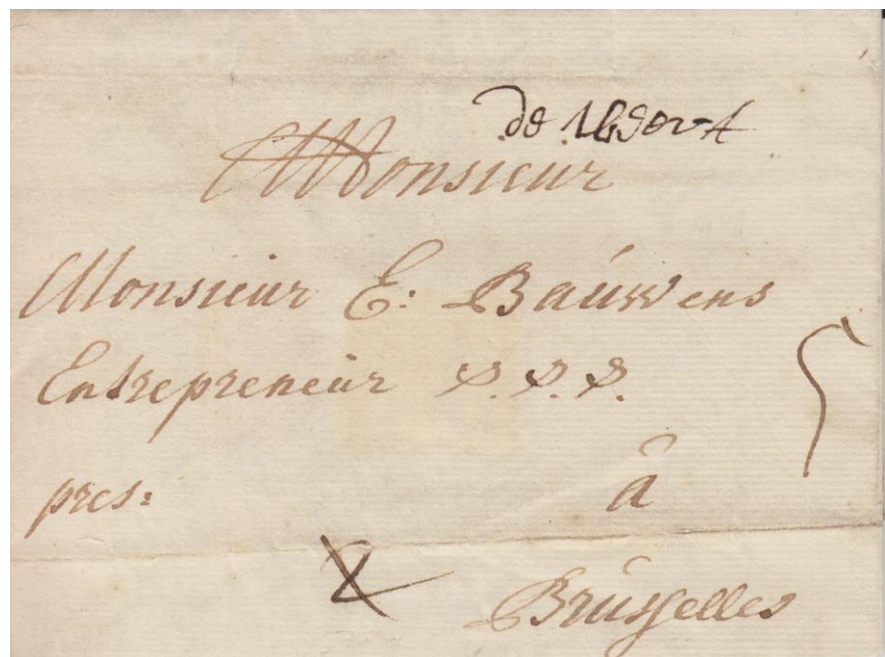 Monsieur
Monsieur E: Bauwens
Entrepreneur &. &. &.
pres: à
Brusselles
5